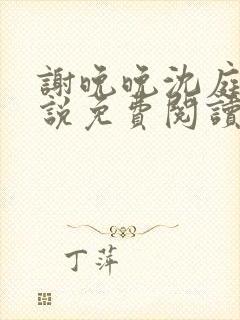 謝晚晚沈庭
說免費閱讀
丁萍